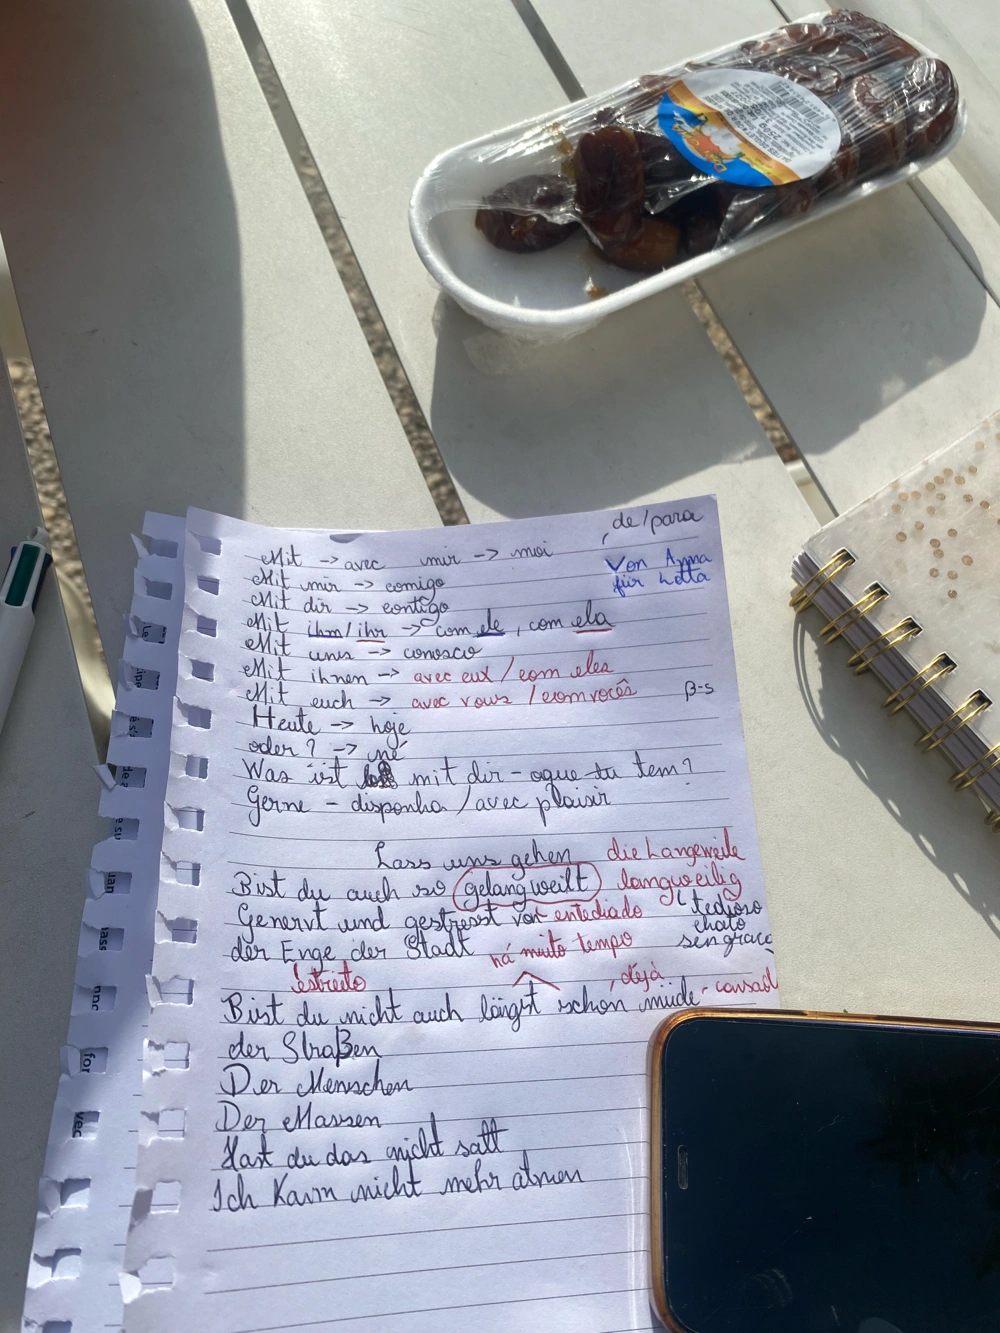 Mit → avec mir → moi
de/para
Mit mir → comigo
Von Anna
für Lotta
Mit dir → contigo
Mit ihm/ihr → com ele, com ela
Mit uns → conosco
Mit ihnen → avec eux / com eles
Mit euch → avec vous / com vocês
β=s
Heute → hoje
oder? → né
Was ist mit dir - oque tu tem?
Gerne - disponha / avec plaisir
Lass uns gehen
die Langeweile
Bist du auch so gelangweilt
langweilig
Genervt und gestresst von
entediado
tedioso
chato
der Enge der Stadt
há muito tempo
sengraça
estreito
déjà
Bist du nicht auch längst schon müde - cansad
der Straßen
Der Menschen
Der Massen
Hast du das nicht satt
Ich Kann nicht mehr atmen
250g
for
vec